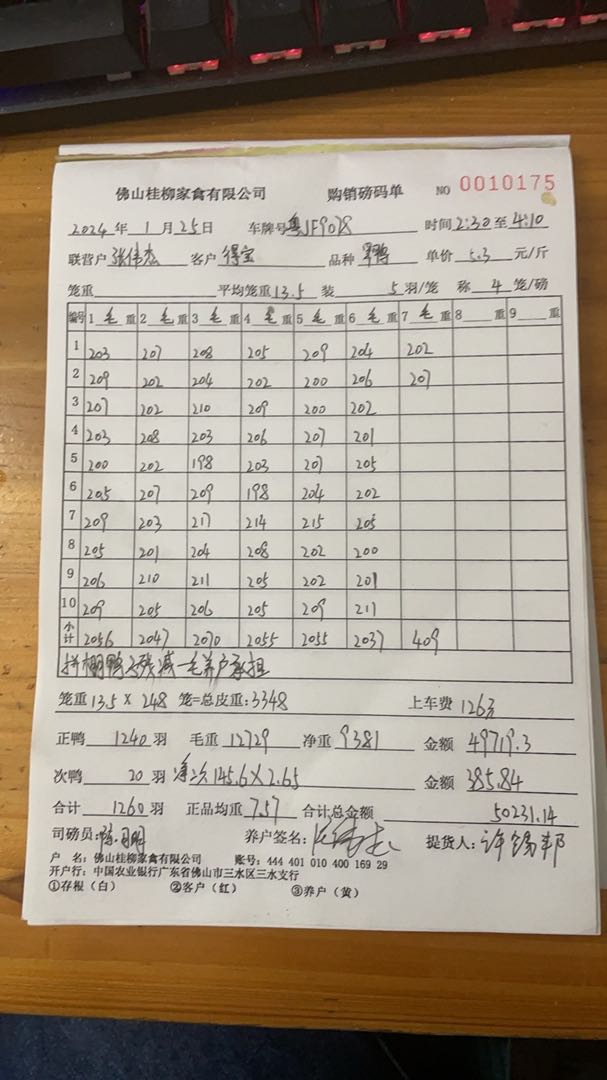 佛山桂柳家禽有限公司 购销磅码单 NO 0010175
2024年 1月 25日 车牌号 粤JF9078 时间 2:30 至 4:10
联营户 张伟杰 客户 得宝 品种 单价 5.3 元/斤
笼重 平均笼重 13.5 装 5 羽/笼 称 4 笼/磅
编号 1 毛 重 2 毛 重 3 毛 重 4 毛 重 5 毛 重 6 毛 重 7 毛 重 8 重 9 重
1 203 207 208 205 209 204 202
2 209 202 204 202 200 206 207
3 207 202 210 209 200 202
4 203 208 203 206 207 201
5 200 202 198 203 207 205
6 205 207 209 198 204 202
7 209 203 217 214 215 205
8 205 201 204 208 202 200
9 206 210 211 205 202 201
10 209 205 206 205 209 211
小计 2056 2047 2070 2055 2055 2037 409
拼棚鸭 残减一毛养户承担
笼重 13.5 X 248 笼=总皮重:3348 上车费 126元
正鸭 1240 羽 毛重 12729 净重 9381 金额 49719.3
次鸭 20 羽 净次 145.6 X 2.65 金额 385.84
合计 1260 羽 正品均重 7.57 合计总金额 50231.14
司磅员: 养户签名: 提货人:
户 名:佛山桂柳家禽有限公司 账号:444 401 010 400 169 29
开户行:中国农业银行广东省佛山市三水区三水支行
①存根(白) ②客户(红) ③养户(黄)